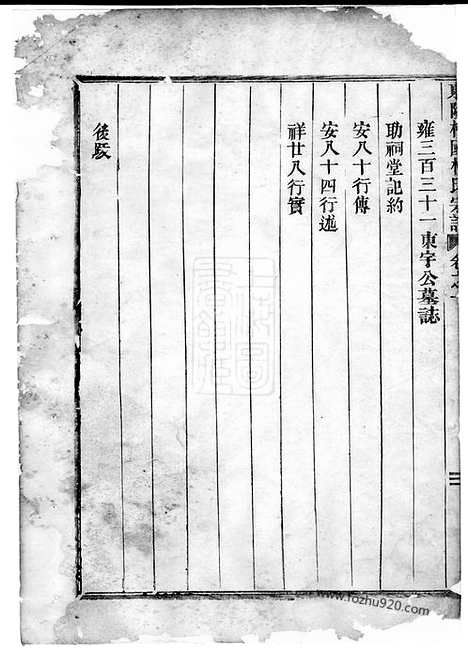 東陽
氏宗譜
卷之
三
雍三百三十一東宇公墓誌
助祠堂記約
安八十行傳
安八十四行述
祥廿八行實
後跋
www.fozhu920.com